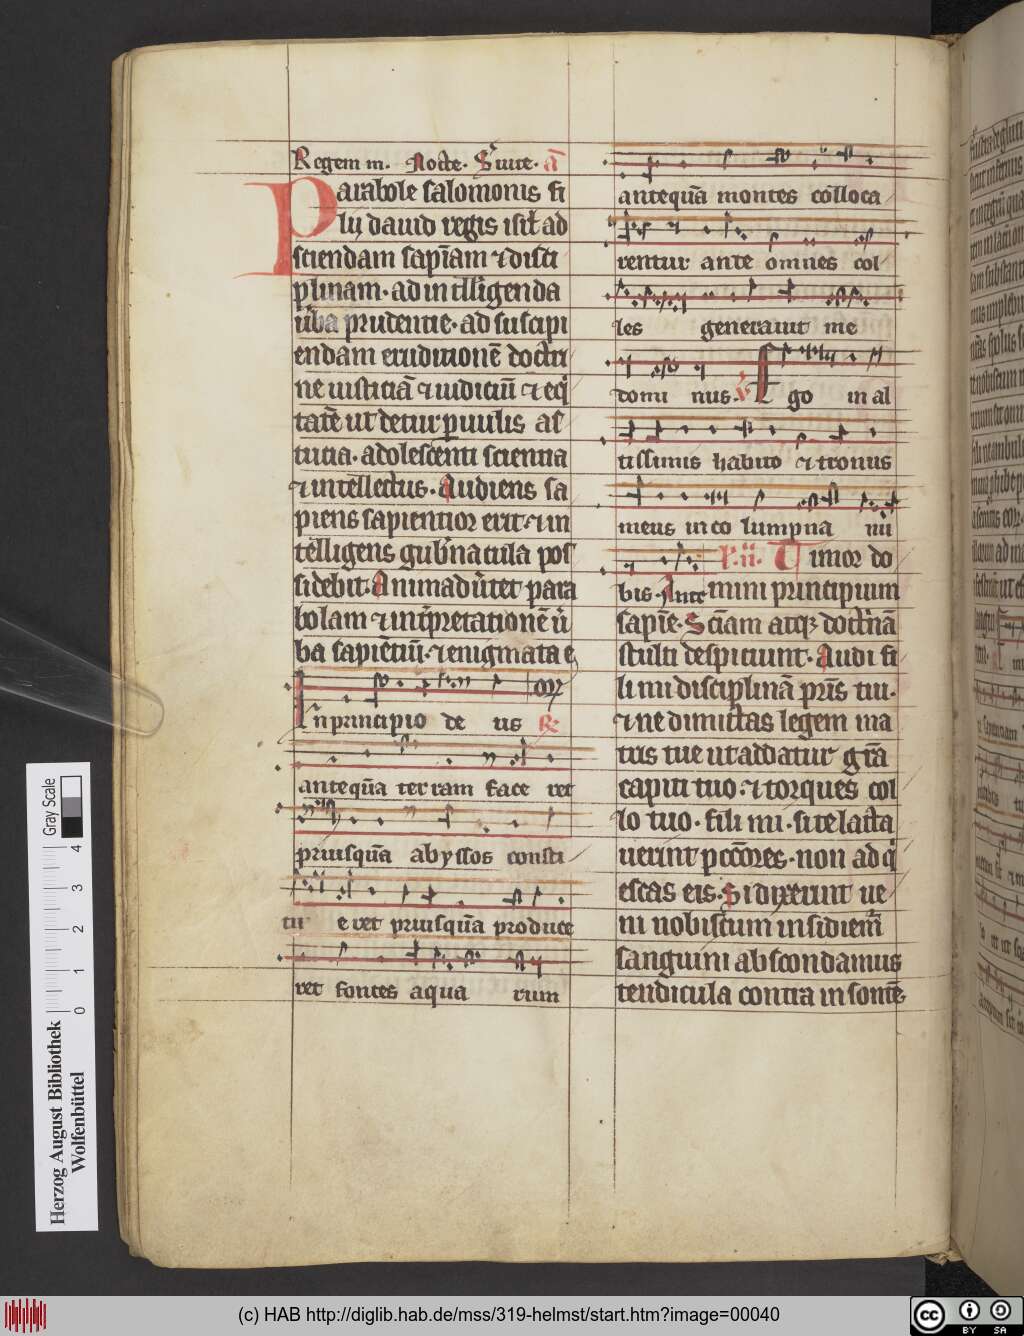 Regem m. Nocte. Suite. a̅
Parabole salomonis fi
lij dauid regis isrl̅ ad
sciendam sapi̅am ⁊ disci
plinam. ad intelligenda
u̅ba prudentie. ad suscipi
endam eruditione̅ doctri
ne iusticia̅ ⁊ iudiciu̅ ⁊ eq̅
tate̅ ut detur puulis as
tutia. adolescenti scientia
⁊ intellectus. Audiens sa
piens sapientior erit ⁊ in
telligens gub̅nacula pos
sidebit. Animadu̅tet para
bolam ⁊ int̅pretatione̅ u̅
ba sapie̅tiu̅. ⁊ enigmata e
oꝝ
In principio de us R
anteq̅a terram face ret
priusq̅a abyssos consti
tu e ret priusq̅a produce
ret fontes aqua rum
anteq̅a montes colloca
rentur ante omnes col
les generauit me
domi nus. V Ego in al
tissimis habito ⁊ tronus
meus in co lumpna nu
P. ii. Timor do
bis. Ante mini principium
sapi̅e. Sci̅am atqꝫ doctri̅a̅
stulti despiciunt. Audi fi
li mi disciplina̅ pr̅is tui.
⁊ ne dimittas legem ma
tris tue ut addatur gr̅a
capiti tuo. ⁊ torques col
lo tuo. fili mi. si te lacta
uerint pcc̅ores. non adq̅
escas eis. Si dixerint ue
ni nobiscum insidiem̅
sanguini abscondamus
tendicula contra insonte̅.
Gray Scale
0 1 2 3 4
Herzog August Bibliothek
Wolfenbüttel
(c) HAB http://diglib.hab.de/mss/319-helmst/start.htm?image=00040
cc
BY SA